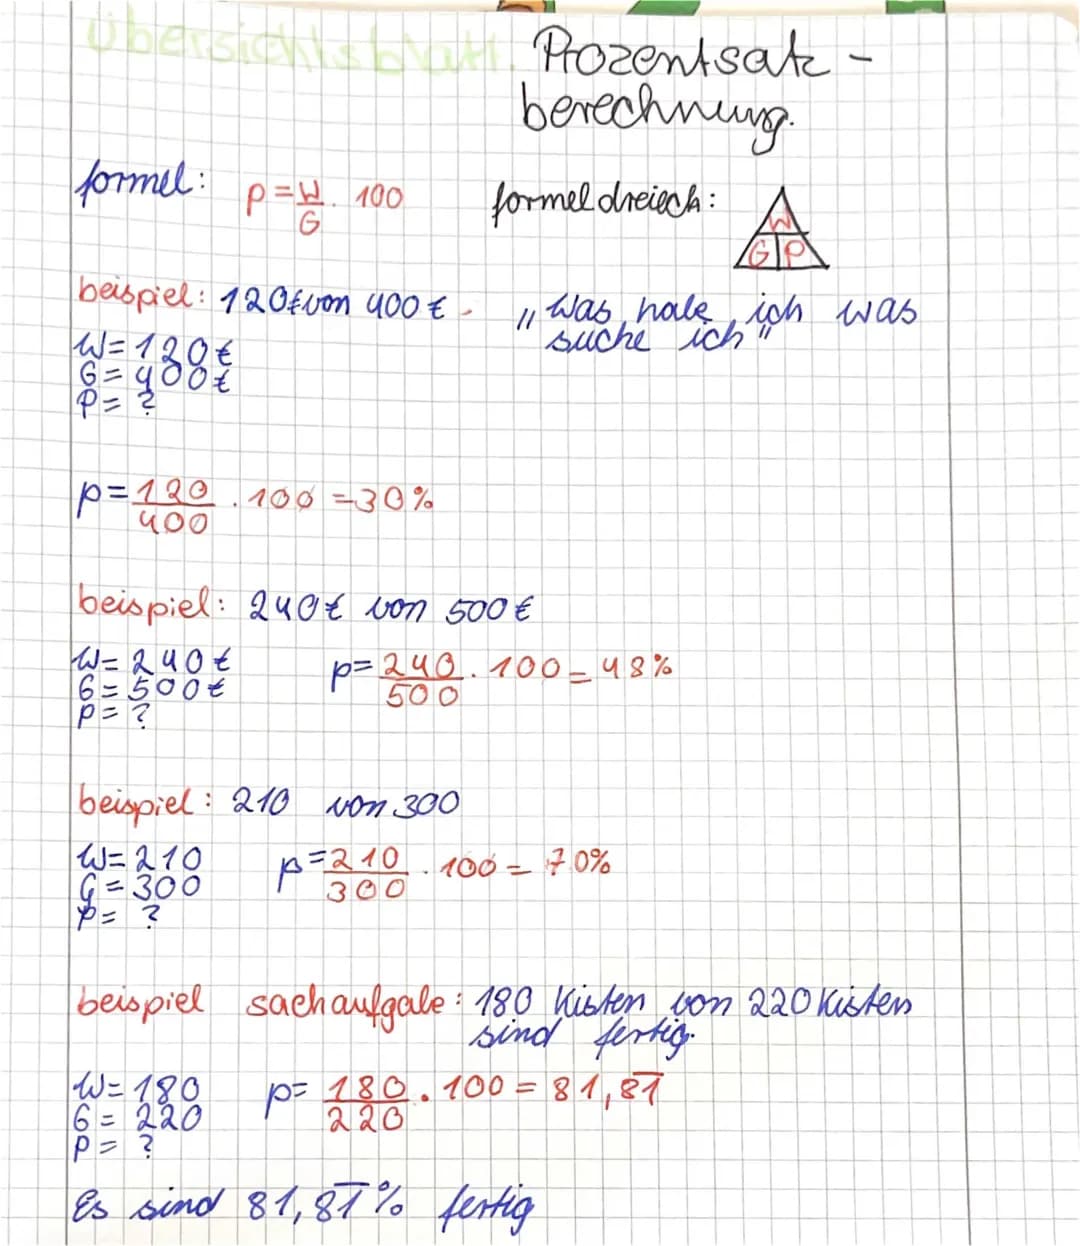 Übersichtsblatt. Prozentsatz-
berechnung.
formel: p = W/G · 100 formeldreieck: W G P
beispiel: 120€ von 400€ - „Was habe ich was
suche ich"
W= 120€
G= 400€
P= ?
p= 120/400 · 100 = 30%
beispiel: 240€ von 500€
W= 240€
G= 500€
p= ?
p= 240/500 · 100 = 48%
beispiel: 210 von 300
W= 210
G= 300
p= ?
p= 210/300 · 100 = 70%
beispiel sachaufgabe: 180 Kisten von 220 Kisten
sind fertig.
W= 180
G= 220
p= ?
p= 180/220 · 100 = 81,8̅1̅
Es sind 81,8̅1̅% fertig